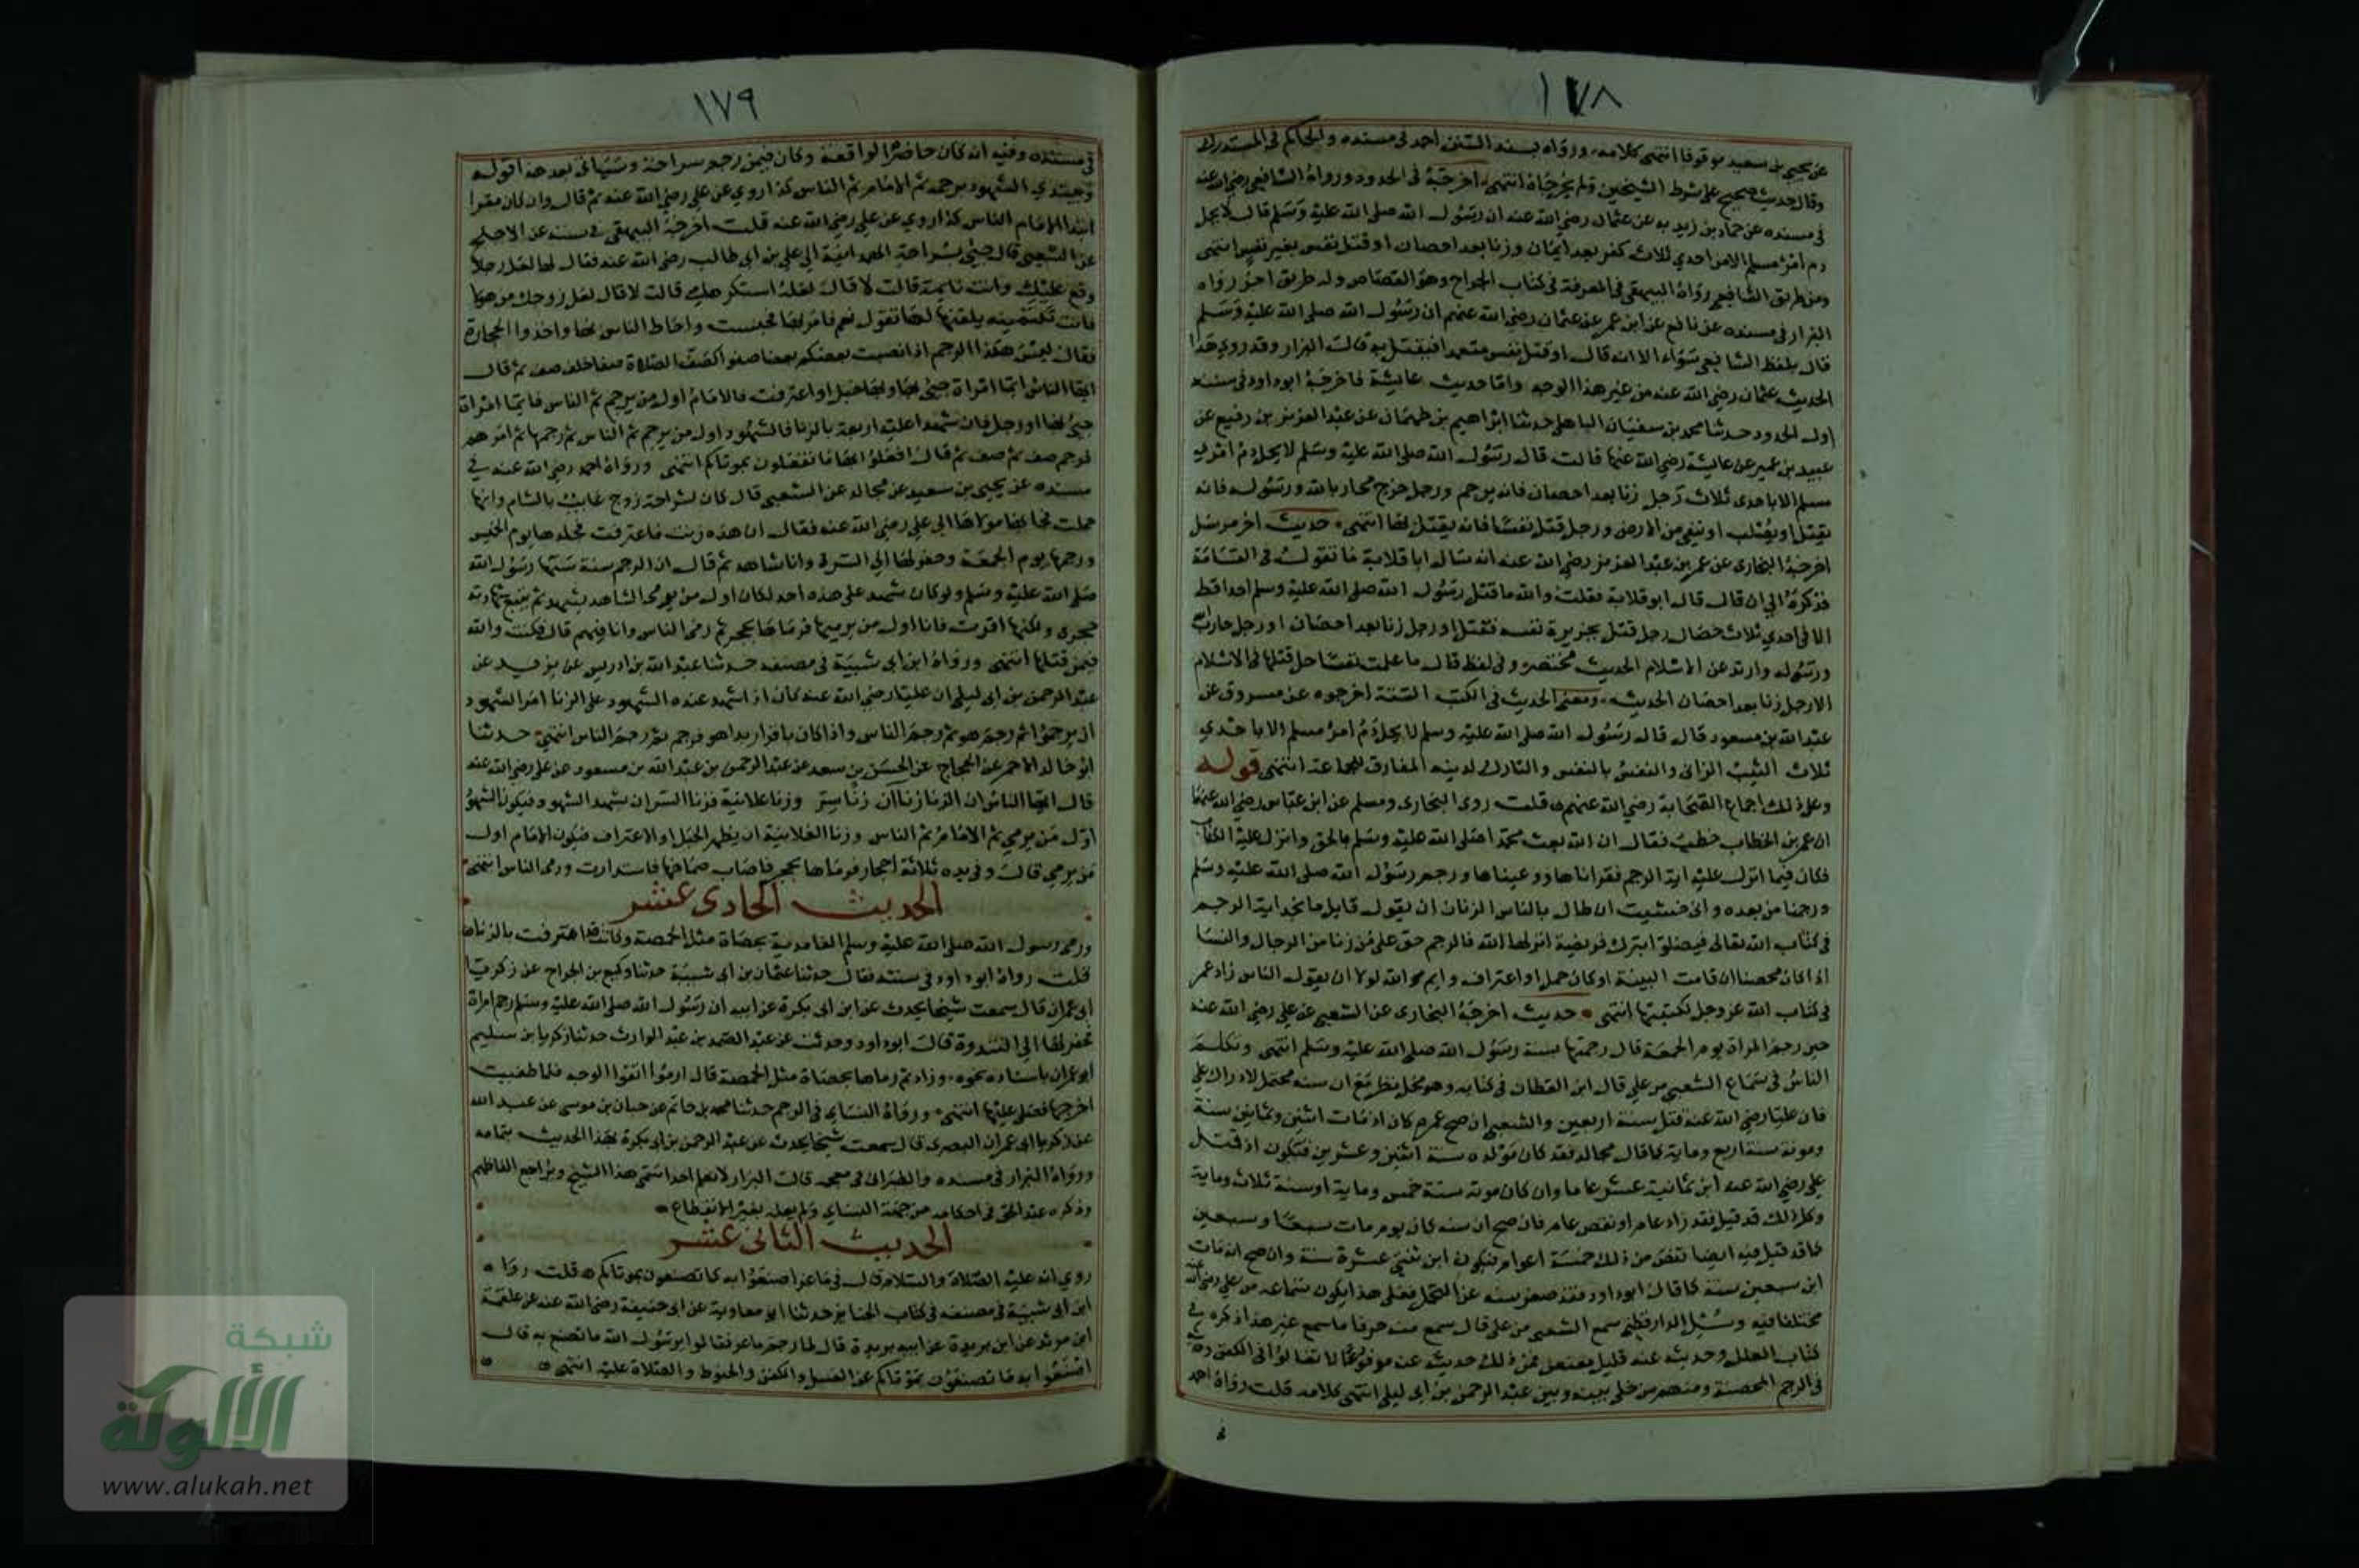 ١٧٨
عن يحيى بن سعيد موقوفا انتهى كلامه ورواه بسند السنن احمد في مسنده والحاكم في المستدرك
وقال حديث صحيح على شرط الشيخين ولم يخرجاه انتهى اخرجه في الحدود ورواه الشافعي رضي الله عنه
في مسنده عن حماد بن زيد به عن عثمان رضي الله عنه ان رسول الله صلى الله عليه وسلم قال لا يحل
دم امرئ مسلم الا من احدي ثلاث كفر بعد ايمان وزنا بعد احصان او قتل نفس بغير نفس انتهى
ومن طريق الشافعي رواه البيهقي في المعرفة في كتاب الجراح وهو القصاص وله طريق اخر رواه
البزار في مسنده عن نافع عن ابن عمر عن عثمان رضي الله عنهم ان رسول الله صلى الله عليه وسلم
قال بلفظ الشافعي سواء الا انه قال او قتل نفس متعمدا فيقتل به قال البزار وقد روي هذا
الحديث عثمان رضي الله عنه من غير هذا الوجه واما حديث عايشة فاخرجه ابو داود في سننه
اول الحدود حدثنا محمد بن سفيان الباهلي حدثنا ابراهيم بن طهمان عن عبد العزيز بن رفيع عن
عبيد بن عمير عن عايشة رضي الله عنها قالت قال رسول الله صلى الله عليه وسلم لا يحل دم امرئ
مسلم الا باحدى ثلاث رجل زنا بعد احصان فانه يرجم ورجل خرج محاربا لله ورسوله فانه
يقتل او يصلب او ينفي من الارض ورجل قتل نفسا فانه يقتل بها انتهى حديث اخر مرسل
اخرجه البخاري عن عمر بن عبد العزيز رضي الله عنه انه سال ابا قلابة ما تقول في القسامة
فذكره الي ان قال قال ابو قلابة فقلت والله ما قتل رسول الله صلى الله عليه وسلم احدا قط
الا في احدي ثلاث خصال رجل قتل بجريرة نفسه فقتل او رجل زنا بعد احصان او رجل حارب
ورسوله وارتد عن الاسلام الحديث مختصر وفي لفظ قال ما علمت نفسا حل قتلها في الاسلام
الا رجل زنا بعد احصان الحديث ومعنى الحديث في الكتب الستة اخرجوه عن مسروق عن
عبد الله بن مسعود قال قال رسول الله صلى الله عليه وسلم لا يحل دم امرئ مسلم الا باحدي
ثلاث الثيب الزاني والنفس بالنفس والتارك لدينه المفارق للجماعة انتهى قوله
وعلى ذلك اجماع الصحابة رضي الله عنهم قلت روى البخاري ومسلم عن ابن عباس رضي الله عنهما
ان عمر بن الخطاب خطب فقال ان الله بعث محمدا صلى الله عليه وسلم بالحق وانزل عليه الكتاب
فكان فيما انزل عليه اية الرجم فقراناها ووعيناها ورجم رسول الله صلى الله عليه وسلم
ورجمنا من بعده واني خشيت ان طال بالناس الزمان ان يقول قايل ما نجد اية الرجم
في كتاب الله تعالى فيضلوا بترك فريضة انزلها الله فالرجم حق على من زنا من الرجال والنسا
اذا كان محصنا ان قامت البينة او كان حمل او اعتراف وايم الله لولا ان يقول الناس زاد عمر
في كتاب الله عز وجل لكتبتها انتهى حديث اخرجه البخاري عن الشعبي عن علي رضي الله عنه
حين رجم المراة يوم الجمعة قال رجمتها بسنة رسول الله صلى الله عليه وسلم انتهى وتكلم
الناس في سماع الشعبي من علي قال ابن القطان في كتابه وهو محل نظر مع ان سنه محتمل لادراك علي
فان عليا رضي الله عنه قتل سنة اربعين والشعبي ان صح عمره كان اذ مات اثنين وثمانين سنة
وموته سنة اربع وماية كما قال مجالد فقد كان مولده سنة اثنين وعشرين فيكون اذ قتل
علي رضي الله عنه ابن ثمانية عشر عاما وان كان موته سنة خمس وماية او سنة ثلاث وماية
وكل ذلك قد قيل فقد زاد عام او نقص عام فان صح ان سنه كان يوم مات سبعا وسبعين
فاقد قيل فيه ايضا نقص من ذلك خمسة اعوام فيكون ابن ثنتي عشرة سنة وان صح انه مات
ابن سبعين سنة كما قال ابو داود فقد صغر سنه عن التحمل فعلى هذا يكون سماعه من علي رضي الله عنه
مختلفا فيه وسئل الدارقطني سمع الشعبي من علي قال سمع منه حرفا ما سمع غير هذا ذكره في
كتاب العلل وحديثه عنه قليل معنعن فمن ذلك حديثه عنه مرفوعا لا تغالوا في الكفن وحديثه
في الرجم المحصنة ومنهم من خلى بينه وبين عبد الرحمن بن ابي ليلى انتهى كلامه قلت رواه احمد
في
١٧٩
في مسنده وفيه انه كان حاضرا لواقعة وكان فيمن رجم سراحة وسياتي بعد هذا قوله
ويبتدي الشهود برجمه ثم الامام ثم الناس كذا روي عن علي رضي الله عنه ثم قال وان كان مقرا
ابتدا الامام الناس كذا روي عن علي رضي الله عنه قلت اخرجه البيهقي في سننه عن الاجلح
عن الشعبي قال جيئ بشراحة الهمدانية الى علي بن ابي طالب رضي الله عنه فقال لها لعل رجلا
وقع عليك وانت نايمة قالت لا قال لعله استكرهك قالت لا قال لعل زوجك من هولا
فانت تكتمينه يلقنها لعلها تقول نعم فامر بها فحبست واحاط الناس بها واخذوا الحجارة
فقال ليس هكذا الرجم اذا نصيب بعضكم بعضا صفوا كصف الصلاة صفا خلف صف ثم قال
ايها الناس ايما امراة جيئ بها وبها حبل او اعترفت فالامام اول من يرجم ثم الناس فايما امراة
جيئ بها او رجل فان شهد عليه اربعة بالزنا فالشهود اول من يرجم ثم الناس ثم رجمها ثم امرهم
فرجم صف ثم صف ثم قال افعلوا بها ما تفعلون بموتاكم انتهى ورواه احمد رضي الله عنه في
مسنده عن يحيى بن سعيد عن مجالد عن الشعبي قال كان لشراحة زوج غايب بالشام وانها
حملت فجا بها مولاها الى علي رضي الله عنه فقال ان هذه زنت فاعترفت فجلدها يوم الخميس
ورجمها يوم الجمعة وحفر لها الى السرة وانا شاهد ثم قال ان الرجم سنة سنها رسول الله
صلى الله عليه وسلم ولو كان شهد على هذه احد لكان اول من يرمي الشاهد يشهد ثم يتبع شهادته
حجره ولكنها اقرت فانا اول من يرميها فرماها بحجر ثم رمى الناس وانا فيهم قال فكنت والله
فيمن قتلها انتهى ورواه ابن ابي شيبة في مصنفه حدثنا عبد الله بن ادريس عن يزيد عن
عبد الرحمن بن ابي ليلى ان عليا رضي الله عنه كان اذا شهد عنده الشهود على الزنا امر الشهود
ان يرجموا ثم رجم هو ثم رجم الناس واذا كان باقرار بدا هو فرجم ثم رجم الناس انتهى حدثنا
ابو خالد الاحمر عن الحجاج عن الحسن بن سعد عن عبد الرحمن بن عبد الله بن مسعود عن علي رضي الله عنه
قال ايها الناس ان الزنا زناآن زنا سر وزنا علانية فزنا السر ان يشهد الشهود فيكون الشهود
اول من يرمي ثم الامام ثم الناس وزنا العلانية ان يظهر الحبل او الاعتراف فيكون الامام اول
من يرمي قال وفي يده ثلاثة احجار فرماها بحجر فاصاب صماخها فاستدارت ورمى الناس انتهى
الحديث الحادي عشر
ورمى رسول الله صلى الله عليه وسلم الغامدية بحصاة مثل الحمصة وكانت قد اعترفت بالزنا
قلت رواه ابو داود في سننه فقال حدثنا عثمان بن ابي شيبة حدثنا وكيع بن الجراح عن زكريا
ابي عمران قال سمعت شيخا يحدث عن ابن ابي بكرة عن ابيه ان رسول الله صلى الله عليه وسلم رجم امراة
فحفر لها الى الثندوة قال ابو داود وحدثت عن عبد الصمد بن عبد الوارث حدثنا زكريا بن سليم
ابو عمران باسناده نحوه وزاد ثم رماها بحصاة مثل الحمصة قال ارموا اتقوا الوجه فلما طفيت
اخرجها فصلى عليها انتهى ورواه النسايي في الرجم حدثنا محمد بن حاتم عن حبان بن موسى عن عبد الله
عن زكريا ابي عمران البصري قال سمعت شيخا يحدث عن عبد الرحمن بن ابي بكرة بهذا الحديث بتمامه
ورواه البزار في مسنده والطبراني في معجمه قال البزار لا نعلم احدا سمى هذا الشيخ ويراجع الفاظهم
وذكره عبد الحق في احكامه من جهة النسايي ولم يعله بغير الانقطاع
الحديث الثاني عشر
روي انه عليه الصلاة والسلام قال في ماعز اصنعوا به كما تصنعون بموتاكم قلت رواه
ابن ابي شيبة في مصنفه في كتاب الجنايز حدثنا ابو معاوية عن ابي حنيفة رضي الله عنه عن علقمة
ابن مرثد عن ابن بريدة عن ابيه بريدة قال لما رجم ماعز قالوا يا رسول الله ما نصنع به قال
اصنعوا به ما تصنعون بموتاكم من الغسل والكفن والحنوط والصلاة عليه انتهى
شبكة
الألوكة
www.alukah.net